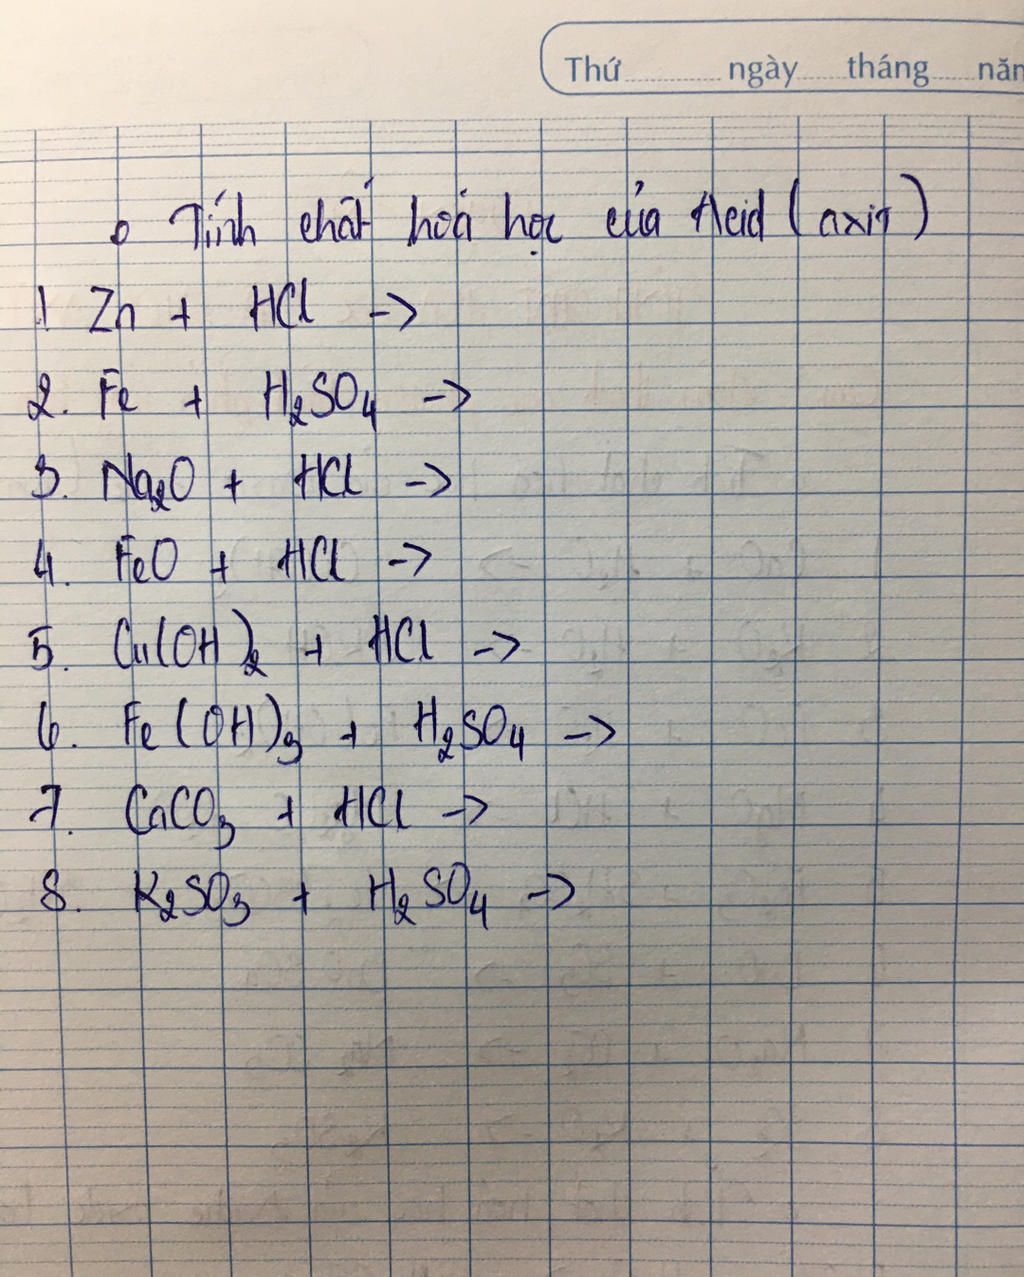 Thứ ngày tháng năm
Tính chất hoá học của Acid (axit)
1 Zn + HCl ->
2. Fe + H₂SO₄ ->
3. Na₂O + HCl ->
4. FeO + HCl ->
5. Cu(OH)₂ + HCl ->
6. Fe(OH)₃ + H₂SO₄ ->
7. CaCO₃ + HCl ->
8. K₂SO₃ + H₂SO₄ ->